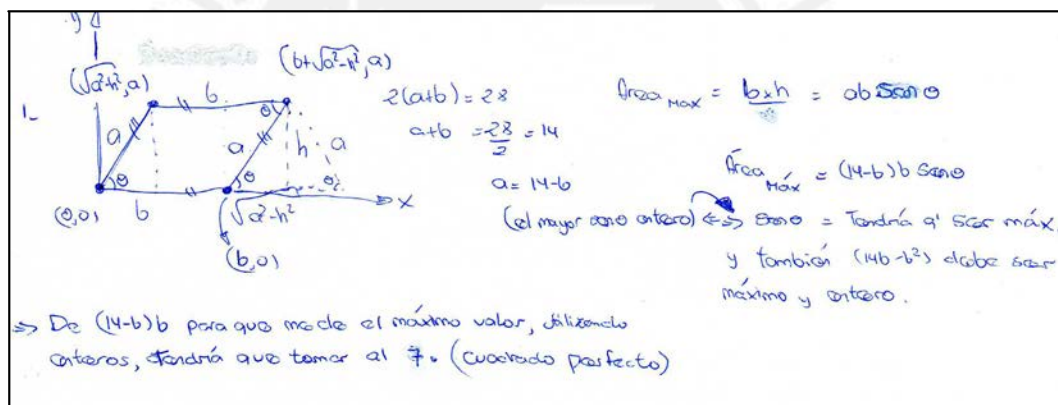 y
(√a²-h², a)
(b+√a²-h², a)
1_
b
a
a
h
a
θ
θ
θ
(0,0)
b
√a²-h²
x
(b,0)
2(a+b) = 28
a+b = 28/2 = 14
a = 14-b
Área Max = b×h = ab Senθ
Área Máx = (14-b)b Senθ
(el mayor seno entero) <=> Senθ = Tendría q' ser máx.
y también (14b-b²) debe ser
máximo y entero.
=> De (14-b)b para que me de el máximo valor, utilizando
enteros, tendría que tomar al 7. (cuadrado perfecto)